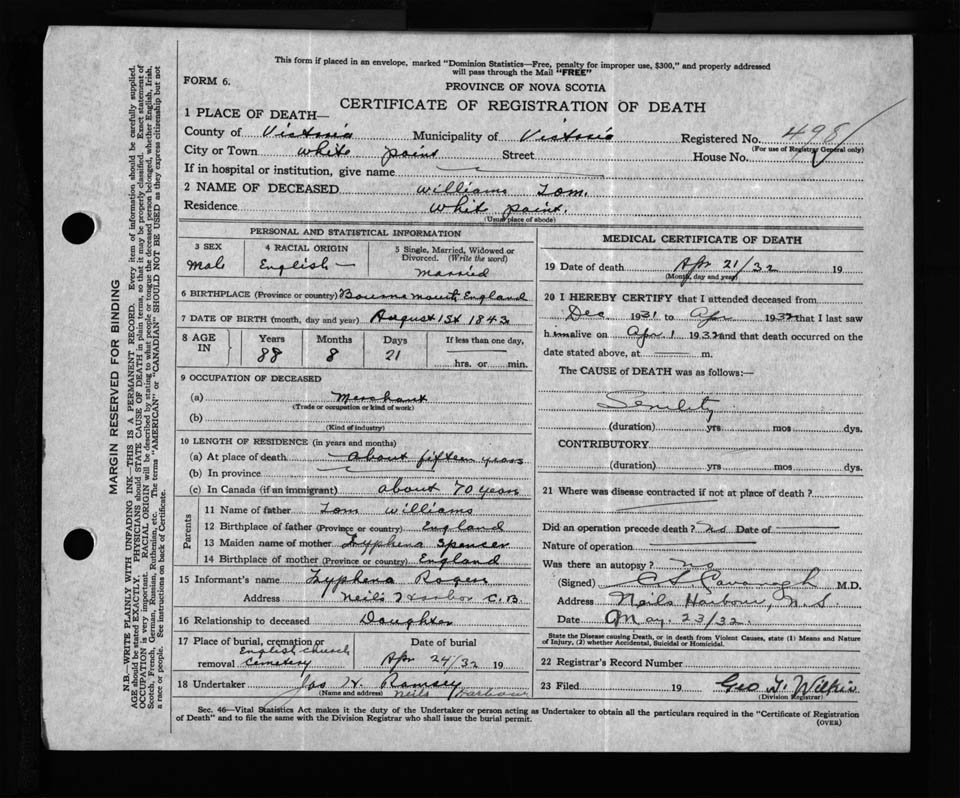 This form if placed in an envelope, marked "Dominion Statistics—Free, penalty for improper use, $300," and properly addressed
will pass through the Mail "FREE"
FORM 6.
PROVINCE OF NOVA SCOTIA
CERTIFICATE OF REGISTRATION OF DEATH
1 PLACE OF DEATH—
County of Victoria Municipality of Victoria Registered No. 498
(For use of Registrar General only)
City or Town White point Street House No.
If in hospital or institution, give name
2 NAME OF DECEASED Williams Tom.
Residence Whit point.
(Usual place of abode)
PERSONAL AND STATISTICAL INFORMATION
3 SEX 4 RACIAL ORIGIN 5 Single, Married, Widowed or
Divorced. (Write the word)
Male English Married
6 BIRTHPLACE (Province or country) Bournemouth, England
7 DATE OF BIRTH (month, day and year) August 1st 1843
8 AGE IN Years Months Days If less than one day,
88 8 21 hrs. or min.
9 OCCUPATION OF DECEASED
(a) Merchant
(Trade or occupation or kind of work)
(b)
(Kind of industry)
10 LENGTH OF RESIDENCE (in years and months)
(a) At place of death About fifteen years
(b) In province
(c) In Canada (if an immigrant) about 70 years
Parents
11 Name of father Tom Williams
12 Birthplace of father (Province or country) England
13 Maiden name of mother Tryphena Spencer
14 Birthplace of mother (Province or country) England
15 Informant's name Tryphena
Address Neils Harbor C.B.
16 Relationship to deceased Daughter
17 Place of burial, cremation or Date of burial
removal English church
cemetery Apr 24/32 19
18 Undertaker Jas H. Ramsey
(Name and address) Neils Harbour
MEDICAL CERTIFICATE OF DEATH
19 Date of death Apr 21/32 19
(Month, day and year)
20 I HEREBY CERTIFY that I attended deceased from
Dec 1931 to Apr 1932 that I last saw
h im alive on Apr. 1 1932 and that death occurred on the
date stated above, at m.
The CAUSE of DEATH was as follows:—
Senility
(duration) yrs mos dys.
CONTRIBUTORY
(duration) yrs mos dys.
21 Where was disease contracted if not at place of death?
Did an operation precede death? No Date of
Nature of operation
Was there an autopsy? No
(Signed) Cavanagh M.D.
Address Neils Harbour, N.S.
Date May. 23/32.
State the Disease causing Death, or in death from Violent Causes, state (1) Means and Nature
of Injury, (2) whether Accidental, Suicidal or Homicidal.
22 Registrar's Record Number
23 Filed 19 Geo T. Wilkie
(Division Registrar)
Sec. 46—Vital Statistics Act makes it the duty of the Undertaker or person acting as Undertaker to obtain all the particulars required in the "Certificate of Registration
of Death" and to file the same with the Division Registrar who shall issue the burial permit.
(OVER)
MARGIN RESERVED FOR BINDING
N.B.—WRITE PLAINLY WITH UNFADING INK—THIS IS A PERMANENT RECORD. Every item of information should be carefully supplied.
AGE should be stated EXACTLY. PHYSICIANS should STATE CAUSE OF DEATH in plain terms, so that it may be properly classified. Exact statement of
OCCUPATION is very important. RACIAL ORIGIN will be described by stating to what people or tongue the deceased person belonged, whether English, Irish,
Scotch, French, German, Russian, Ruthenian, etc. The terms "AMERICAN" or "CANADIAN" SHOULD NOT BE USED as they express citizenship but not
a race or people. See instructions on back of Certificate.